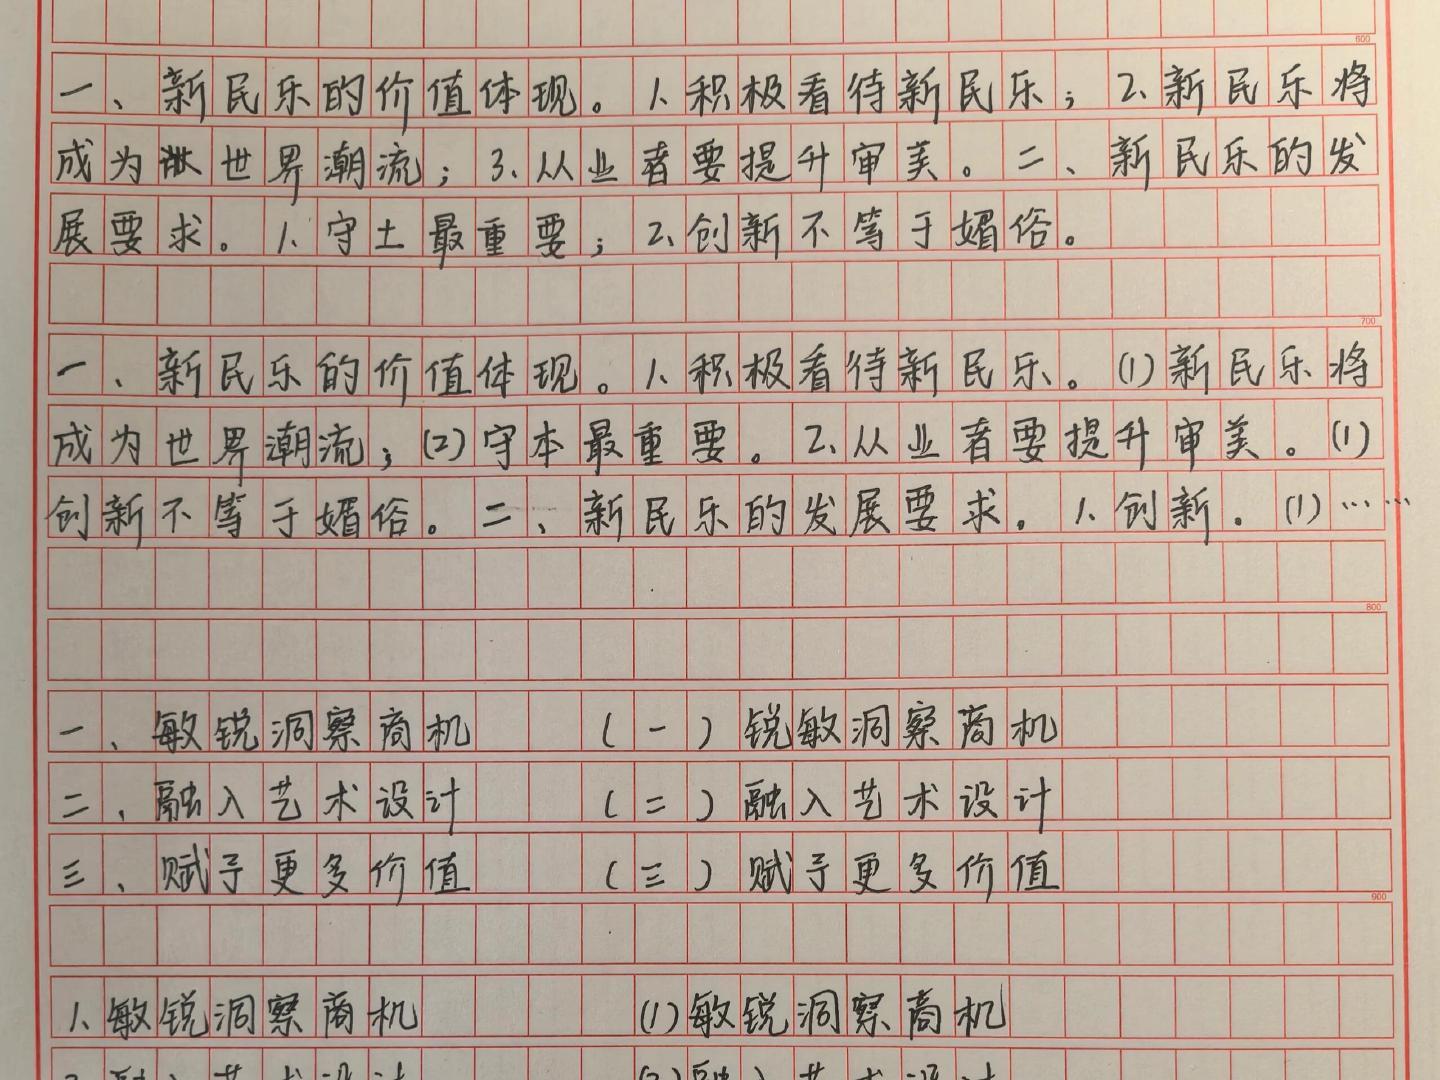 600
一、新民乐的价值体现。1.积极看待新民乐；2.新民乐将
成为世界潮流；3.从业者要提升审美。二、新民乐的发
展要求。1.守土最重要；2.创新不等于媚俗。
700
一、新民乐的价值体现。1.积极看待新民乐。(1)新民乐将
成为世界潮流；(2)守本最重要。2.从业者要提升审美。(1)
创新不等于媚俗。二、新民乐的发展要求。1.创新。(1)……
800
一、敏锐洞察商机 (一)锐敏洞察商机
二、融入艺术设计 (二)融入艺术设计
三、赋予更多价值 (三)赋予更多价值
900
1.敏锐洞察商机 (1)敏锐洞察商机
2.融入艺术设计 (2)融入艺术设计